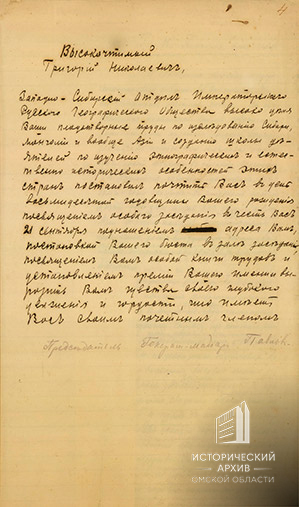 4
Высокочтимый
Григорій Николаевичъ,
Западно-Сибирскій Отдѣлъ Императорскаго
Русскаго Географическаго Общества высоко цѣня
Ваши плодотворные труды по изслѣдованію Сибири,
Монголіи и вообще Азіи и созданію школы дѣ-
ятелей по изученію этнографическихъ и есте-
ственно историческихъ особенностей этихъ
странъ постановилъ почтить Васъ въ день
восьмидесятой годовщины Вашего рожденія
посвященіемъ особаго засѣданія въ честь Васъ
21 сентября поднесеніемъ адреса Вамъ,
постановкой Вашего бюста въ залѣ засѣданій,
посвященіемъ Вамъ особой книги трудовъ и
установленіемъ преміи Вашего имени вы-
разить Вамъ чувства своего глубокаго
уваженія и гордости что имѣетъ
Васъ своимъ почетнымъ членомъ
Предсѣдатель Генералъ-маіоръ
ИСТОРИЧЕСКИЙ
АРХИВ
ОМСКОЙ ОБЛАСТИ